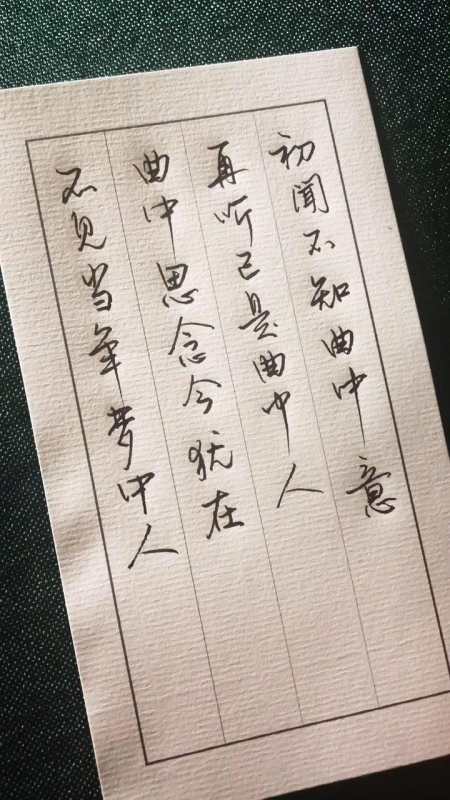 初闻不知曲中意
再听已是曲中人
曲中思念今犹在
不见当年梦中人